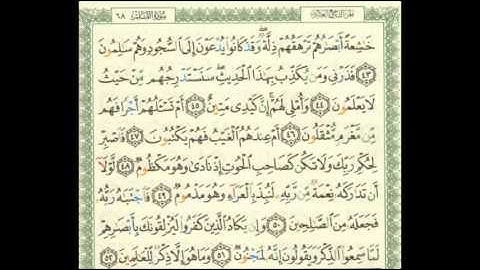 سورة القلم ٦٨
خَٰشِعَةً أَبْصَٰرُهُمْ تَرْهَقُهُمْ ذِلَّةٌ ۖ وَقَدْ كَانُوا۟ يُدْعَوْنَ إِلَى ٱلسُّجُودِ وَهُمْ سَٰلِمُونَ
٤٣ فَذَرْنِى وَمَن يُكَذِّبُ بِهَٰذَا ٱلْحَدِيثِ ۖ سَنَسْتَدْرِجُهُم مِّنْ حَيْثُ
لَا يَعْلَمُونَ ٤٤ وَأُمْلِى لَهُمْ ۚ إِنَّ كَيْدِى مَتِينٌ ٤٥ أَمْ تَسْـَٔلُهُمْ أَجْرًا فَهُم
مِّن مَّغْرَمٍ مُّثْقَلُونَ ٤٦ أَمْ عِندَهُمُ ٱلْغَيْبُ فَهُمْ يَكْتُبُونَ ٤٧ فَٱصْبِرْ
لِحُكْمِ رَبِّكَ وَلَا تَكُن كَصَاحِبِ ٱلْحُوتِ إِذْ نَادَىٰ وَهُوَ مَكْظُومٌ ٤٨ لَّوْلَآ
أَن تَدَٰرَكَهُۥ نِعْمَةٌ مِّن رَّبِّهِۦ لَنُبِذَ بِٱلْعَرَآءِ وَهُوَ مَذْمُومٌ ٤٩ فَٱجْتَبَٰهُ رَبُّهُۥ
فَجَعَلَهُۥ مِنَ ٱلصَّٰلِحِينَ ٥٠ وَإِن يَكَادُ ٱلَّذِينَ كَفَرُوا۟ لَيُزْلِقُونَكَ بِأَبْصَٰرِهِمْ
لَمَّا سَمِعُوا۟ ٱلذِّكْرَ وَيَقُولُونَ إِنَّهُۥ لَمَجْنُونٌ ٥١ وَمَا هُوَ إِلَّا ذِكْرٌ لِّلْعَٰلَمِينَ ٥٢